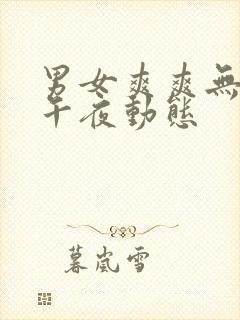 男女爽爽無
午夜動態
暮嵐雪